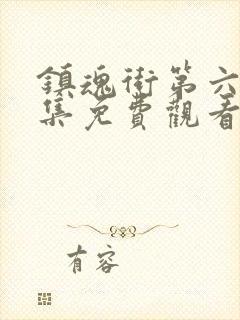 鎮魂街第六
集免費觀看
有容